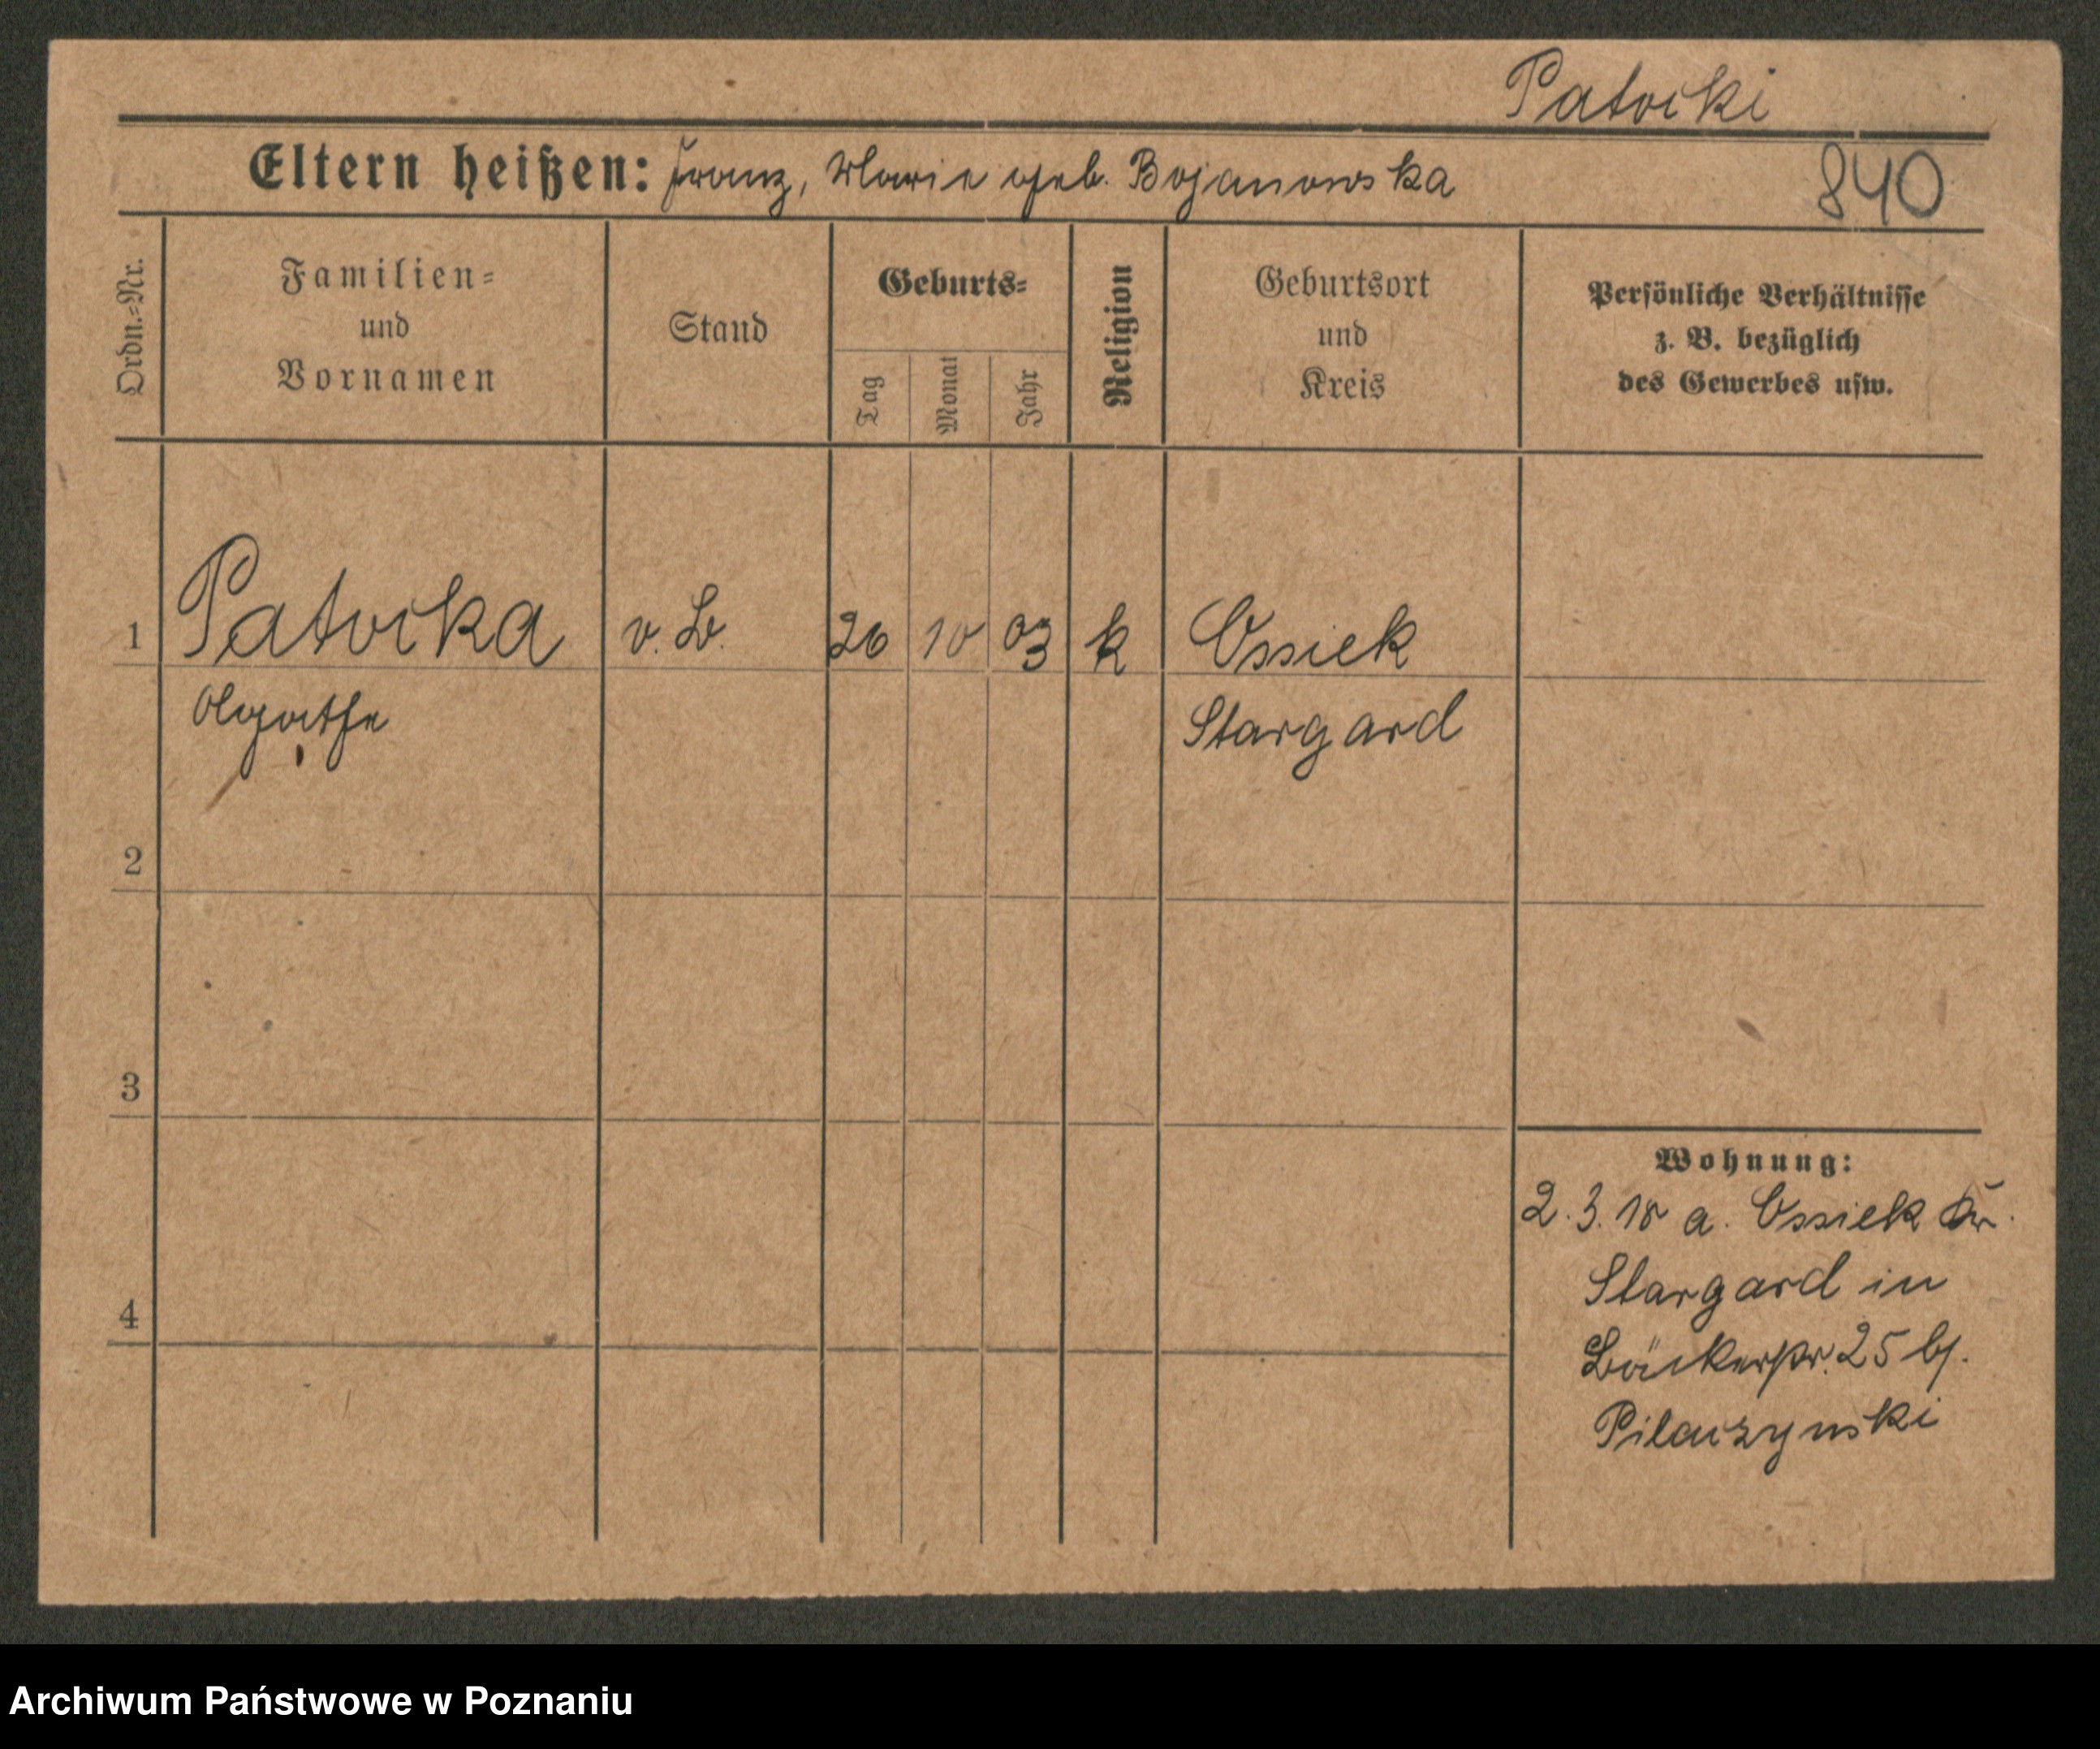 Patocki
Eltern heißen: Franz, Marie geb. Bojanowska
840
Ordn.=Nr.
Familien=
und
Vornamen
Stand
Geburts=
Tag
Monat
Jahr
Religion
Geburtsort
und
Kreis
Persönliche Verhältnisse
z. B. bezüglich
des Gewerbes usw.
1 Patocka v. B. 26 10 03 k Ossiek
Agathe Stargard
2
3
4
Wohnung:
2.3.18 a. Ossiek Kr.
Stargard in
Bäckerstr. 25 bf.
Pilaczynski
Archiwum Państwowe w Poznaniu